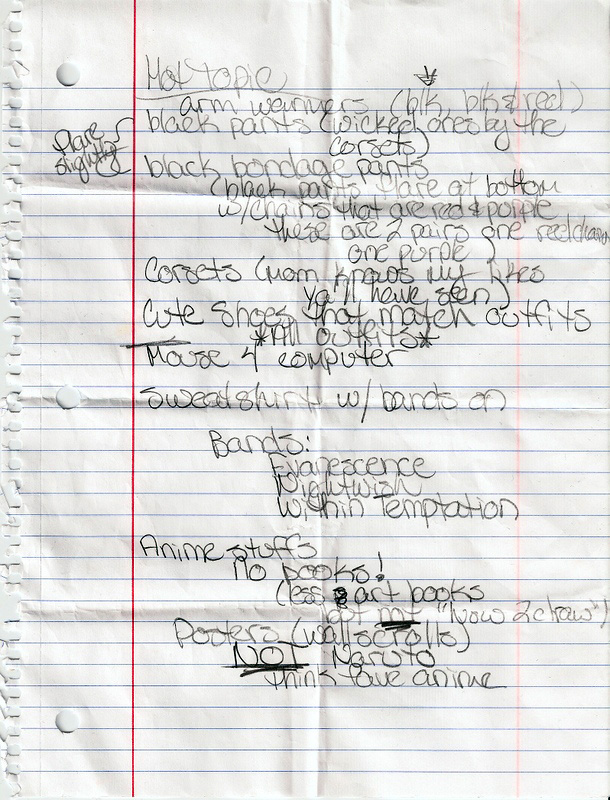 Hot topic
arm warmers (blk, blk & red)
black pants (wicked ones by the
corsets)
flare
slightly
black bondage pants
(black pants flare at bottom
w/chains that are red & purple
these are 2 pairs one red chain
one purple)
Corsets (mom knows my likes
ya'll have seen)
Cute shoes that match outfits
*All outfits*
Mouse 4 computer
Sweatshirt w/ bands on
Bands:
Evanescence
Nightwish
Within Temptation
Anime stuffs
No books!
(less art books
but not "How 2 draw")
Posters (wallscrolls)
NOT Naruto
think fave anime